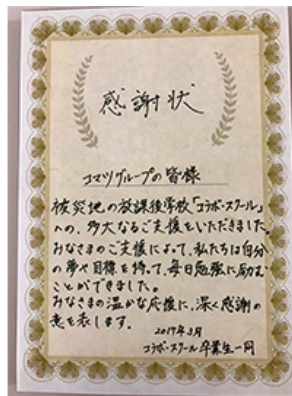 感謝状
コマツグループの皆様
被災地の放課後学校「コラボ・スクール」
への、多大なるご支援をいただきました。
みなさまのご支援によって、私たちは自分
の夢や目標を持って、毎日勉強に励む
ことができました。
みなさまの温かな応援に、深く感謝の
意を表します。
2017年3月
コラボ・スクール卒業生一同